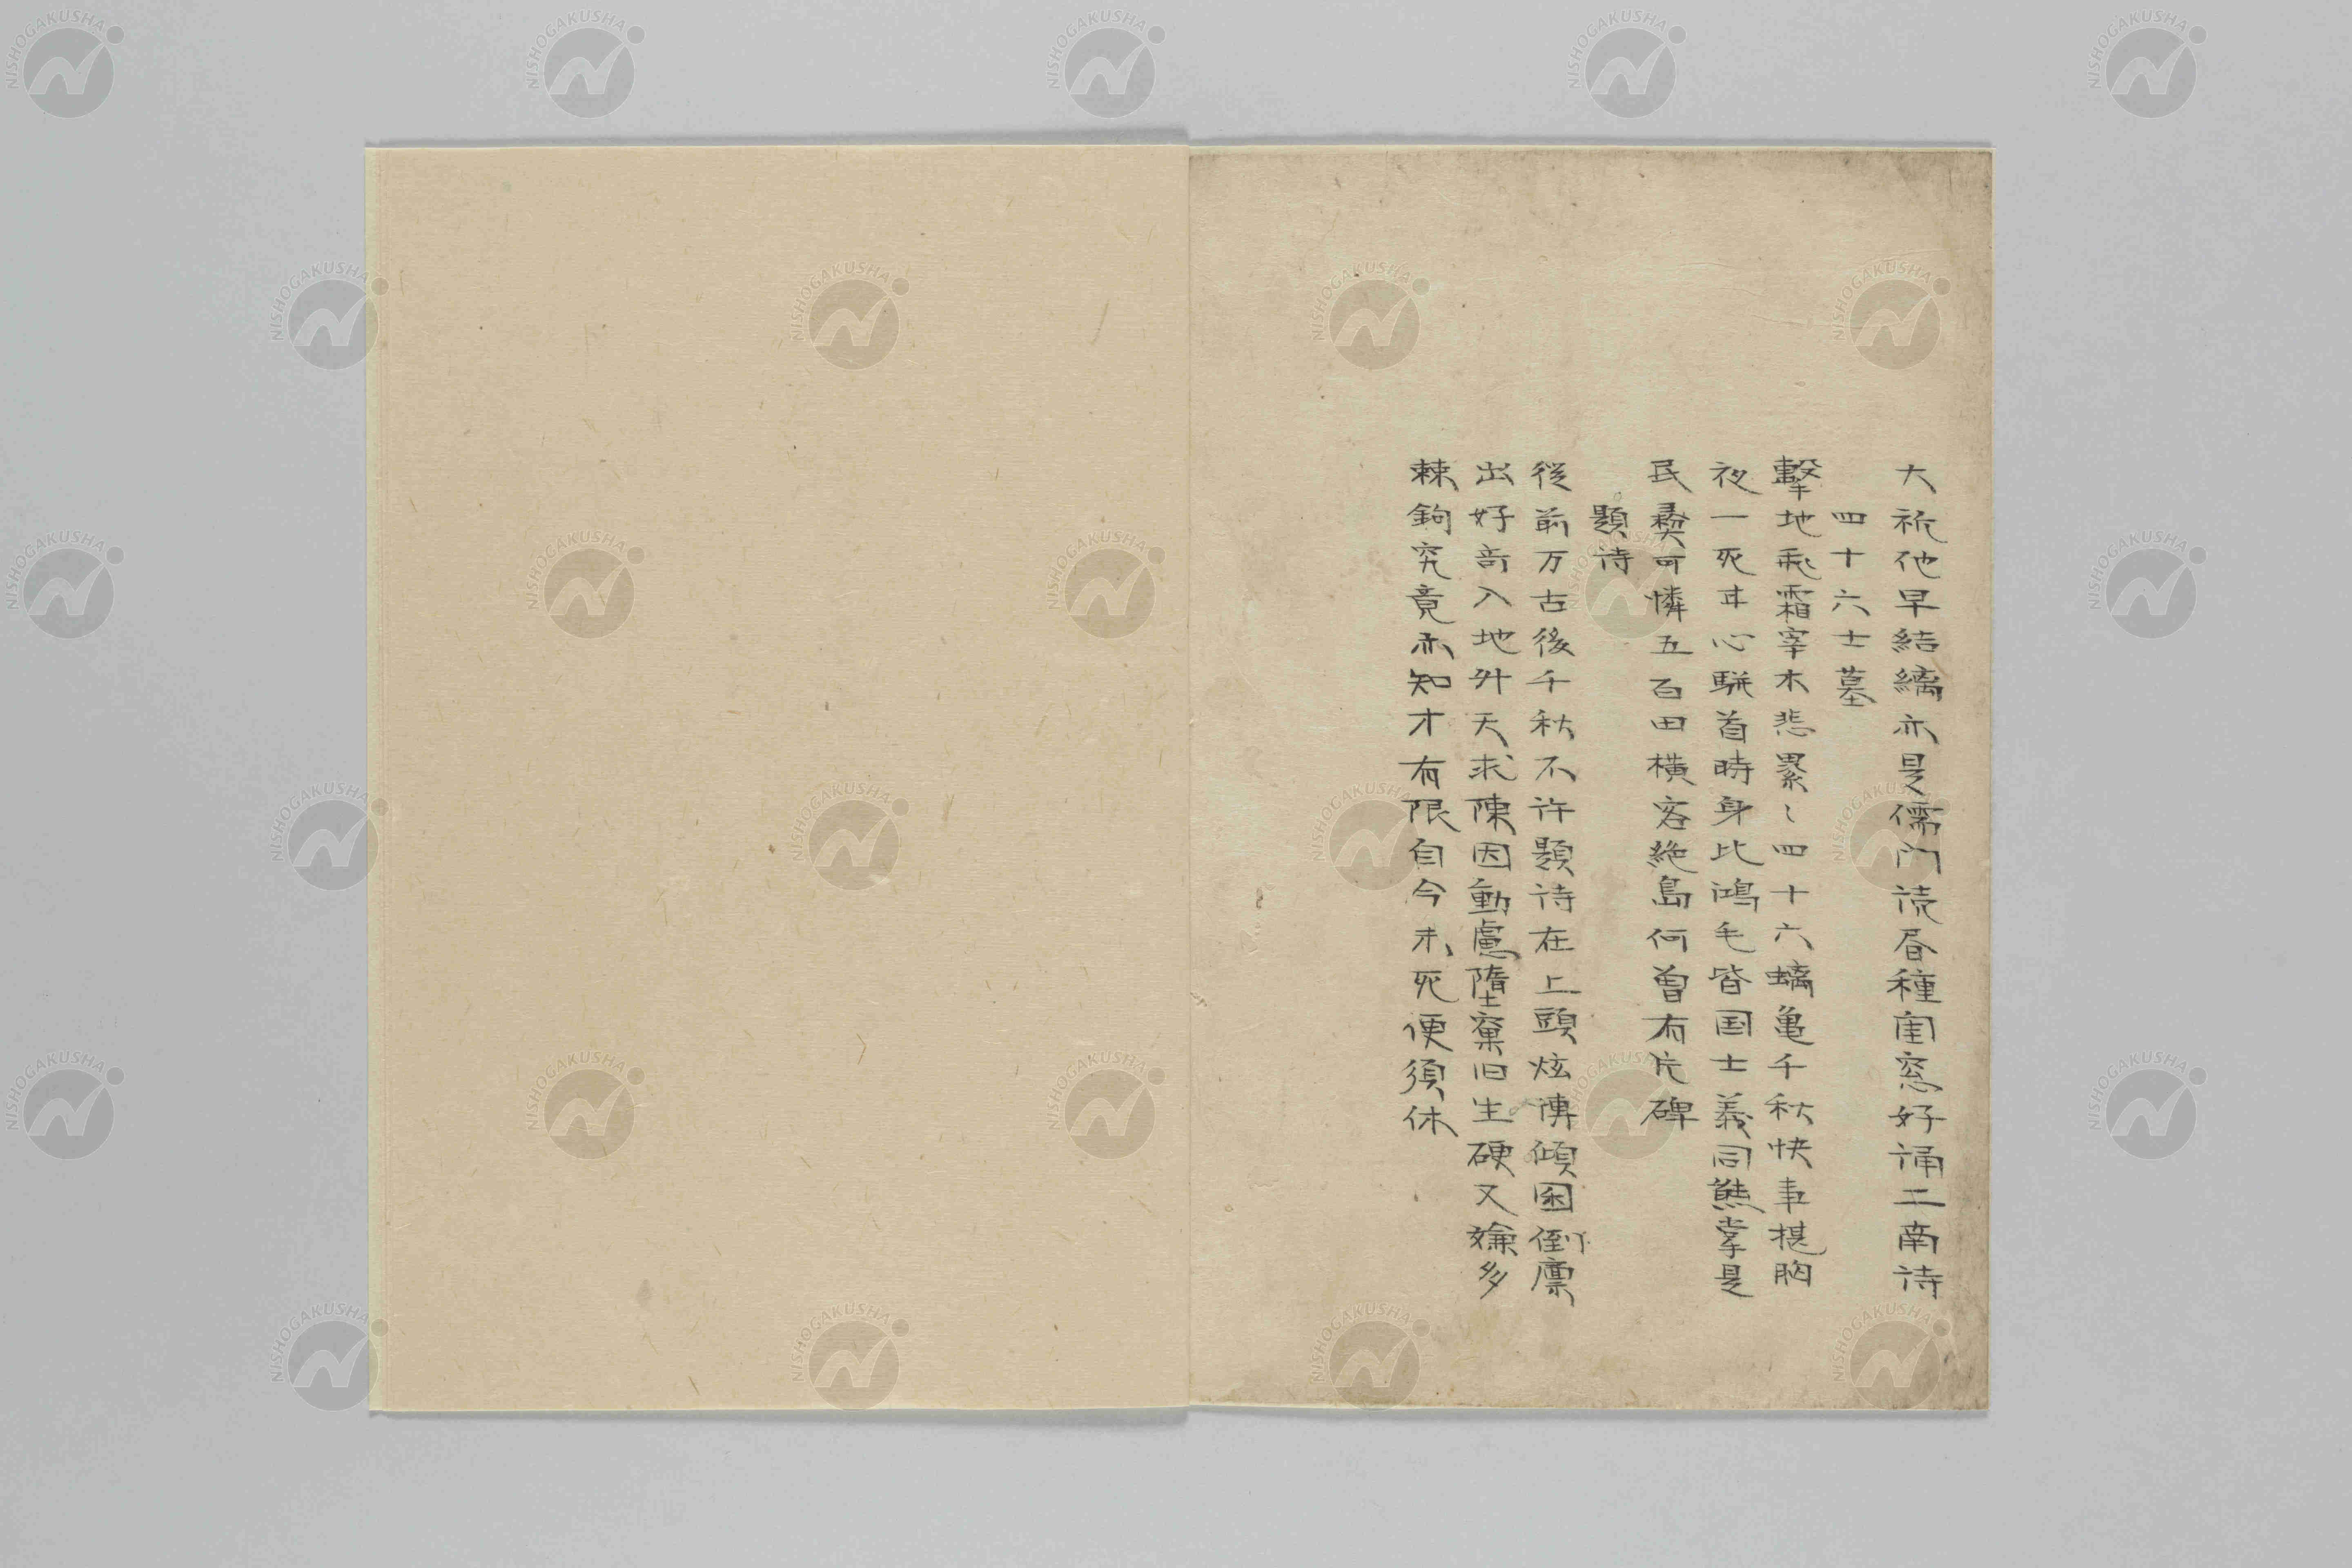 大祈他早結縭亦是儒門読昏種閨窓好誦二南詩
四十六士墓
擊地飛霜宰木悲累〻四十六螭亀千秋快事揕胸
夜一死甘心駢首時身比鴻毛皆国士義同熊掌是
民彛可憐五百田横客絶島何曽有片碑
題詩
從前万古後千秋不許題詩在上頭炫博傾囷倒廩
出好奇入地升天求陳因動慮墮窠旧生硬又嫌多
棘鉤究竟亦知才有限自今未死便須休
NISHOGAKUSHA